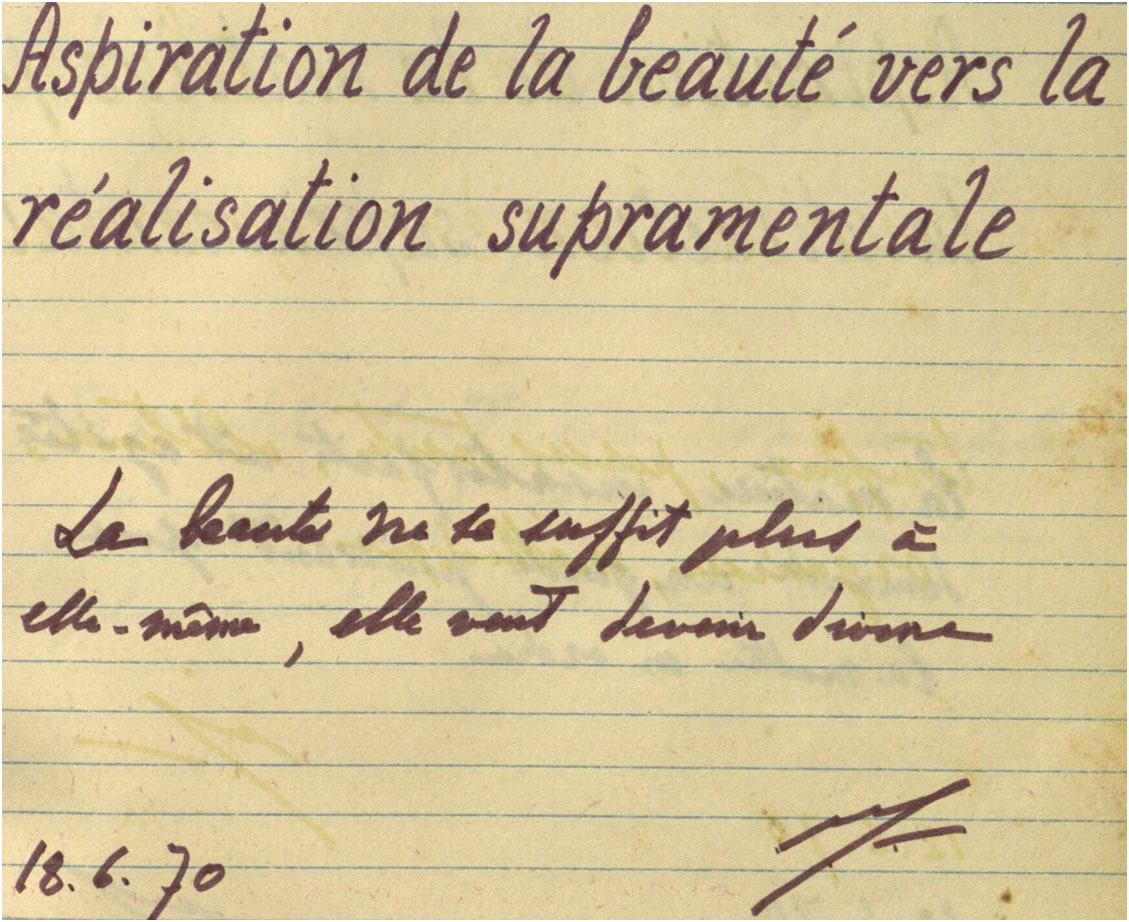 Aspiration de la beauté vers la
réalisation supramentale
La beauté ne se suffit plus à
elle-même, elle veut devenir divine
18.6.70